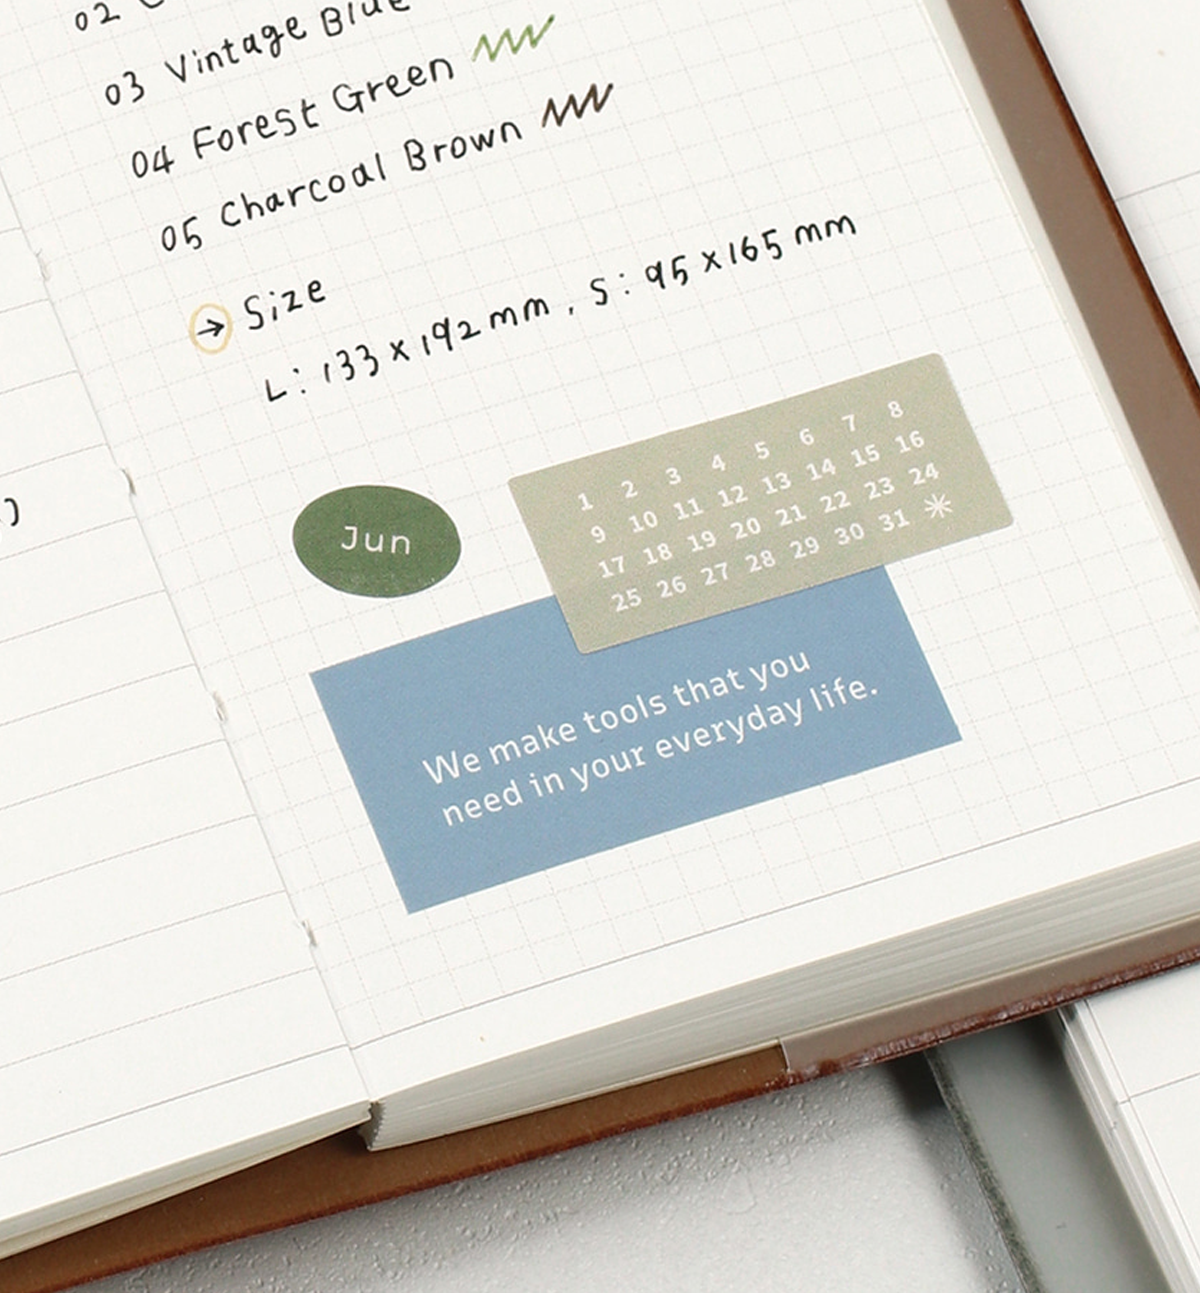 02
03 Vintage Blue
04 Forest Green
05 Charcoal Brown
→ Size
L: 133 x 192 mm, S: 95 x 165 mm
Jun
1 2 3 4 5 6 7 8
9 10 11 12 13 14 15 16
17 18 19 20 21 22 23 24
25 26 27 28 29 30 31 ✳
We make tools that you
need in your everyday life.